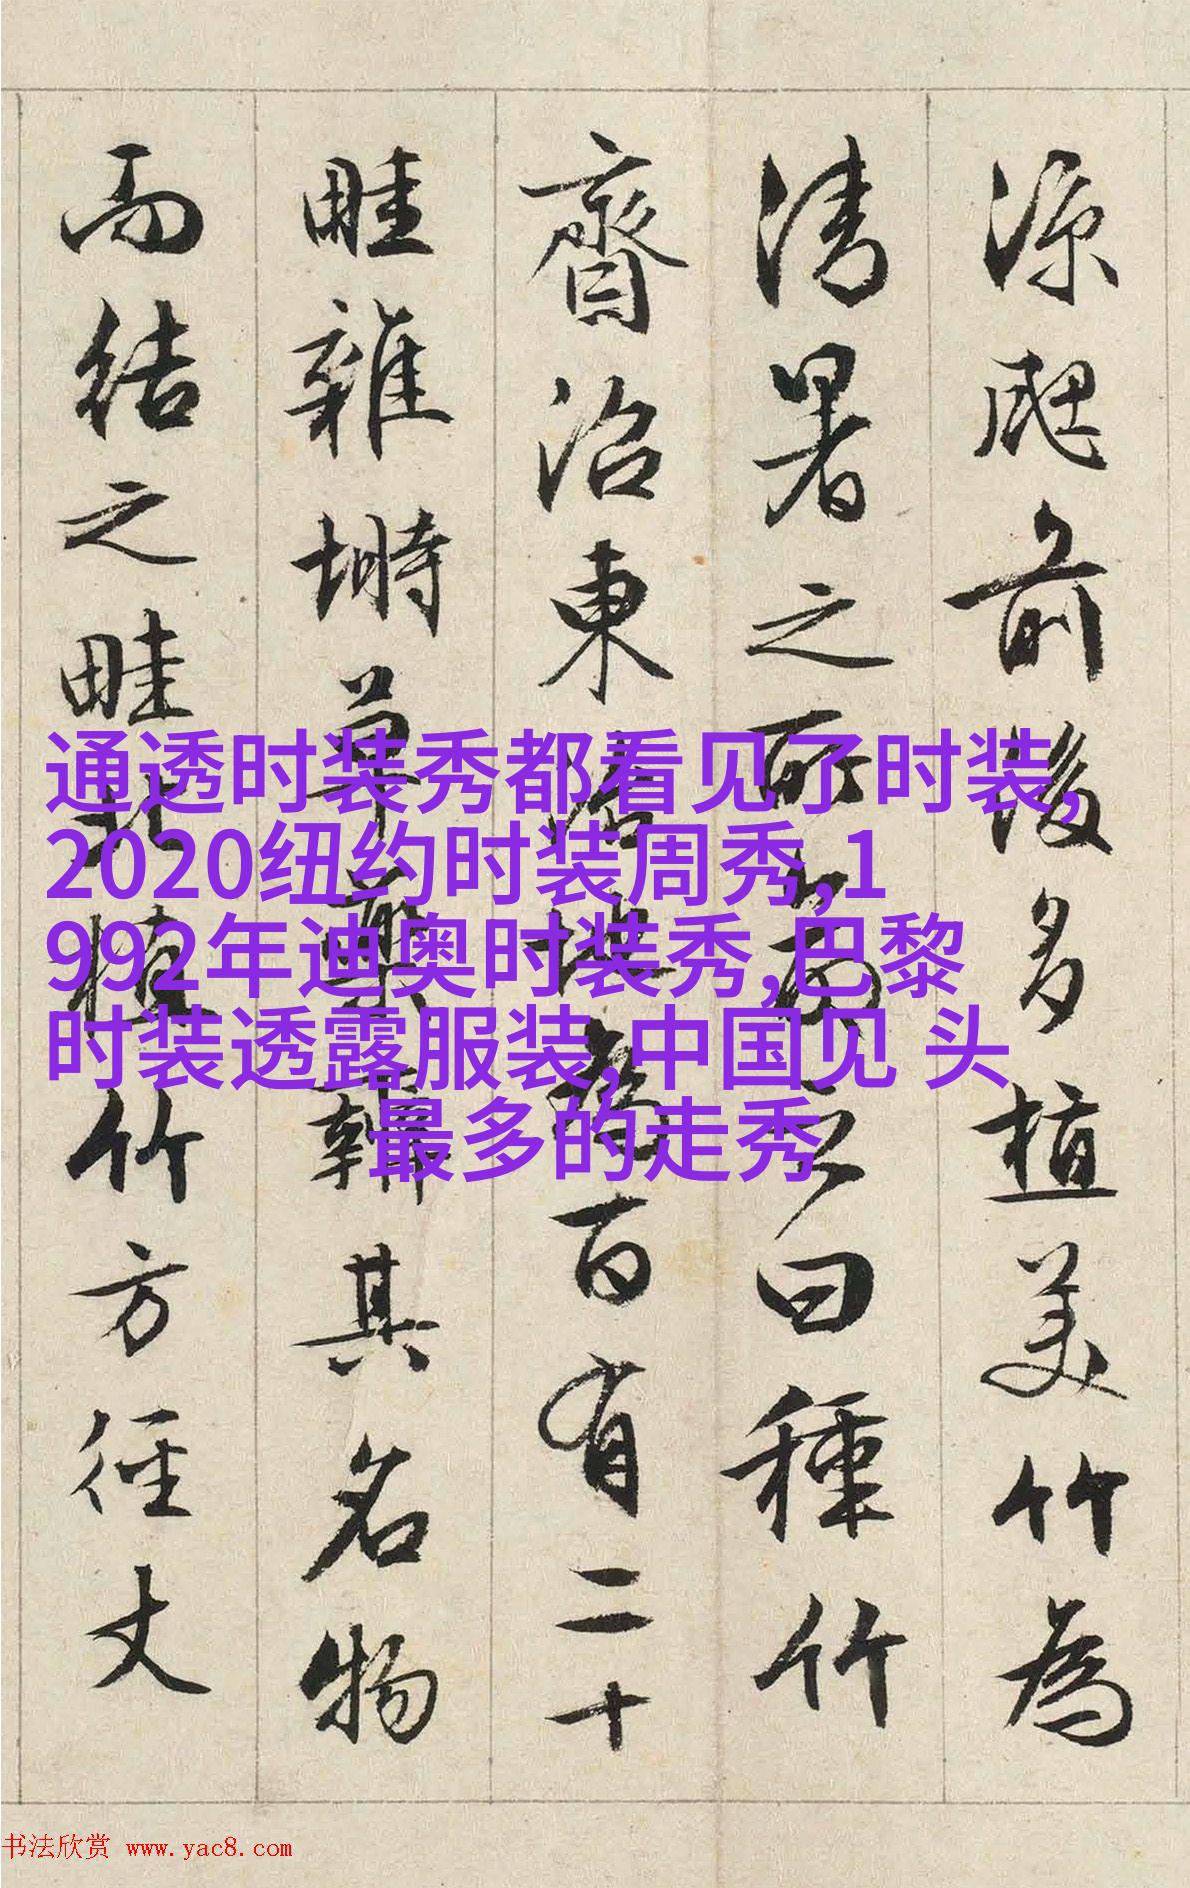 涼颸前後多植美竹為
清暑之所命之曰種竹
齋沼東治地為百有二十
畦雜塒草藥辯其名物
而結之畦北植竹方徑丈
通透时装秀都看见了时装,
2020纽约时装周秀,1
992年迪奥时装秀,巴黎
时装透露服装,中国见 头
最多的走秀
书法欣赏 www.yac8.com